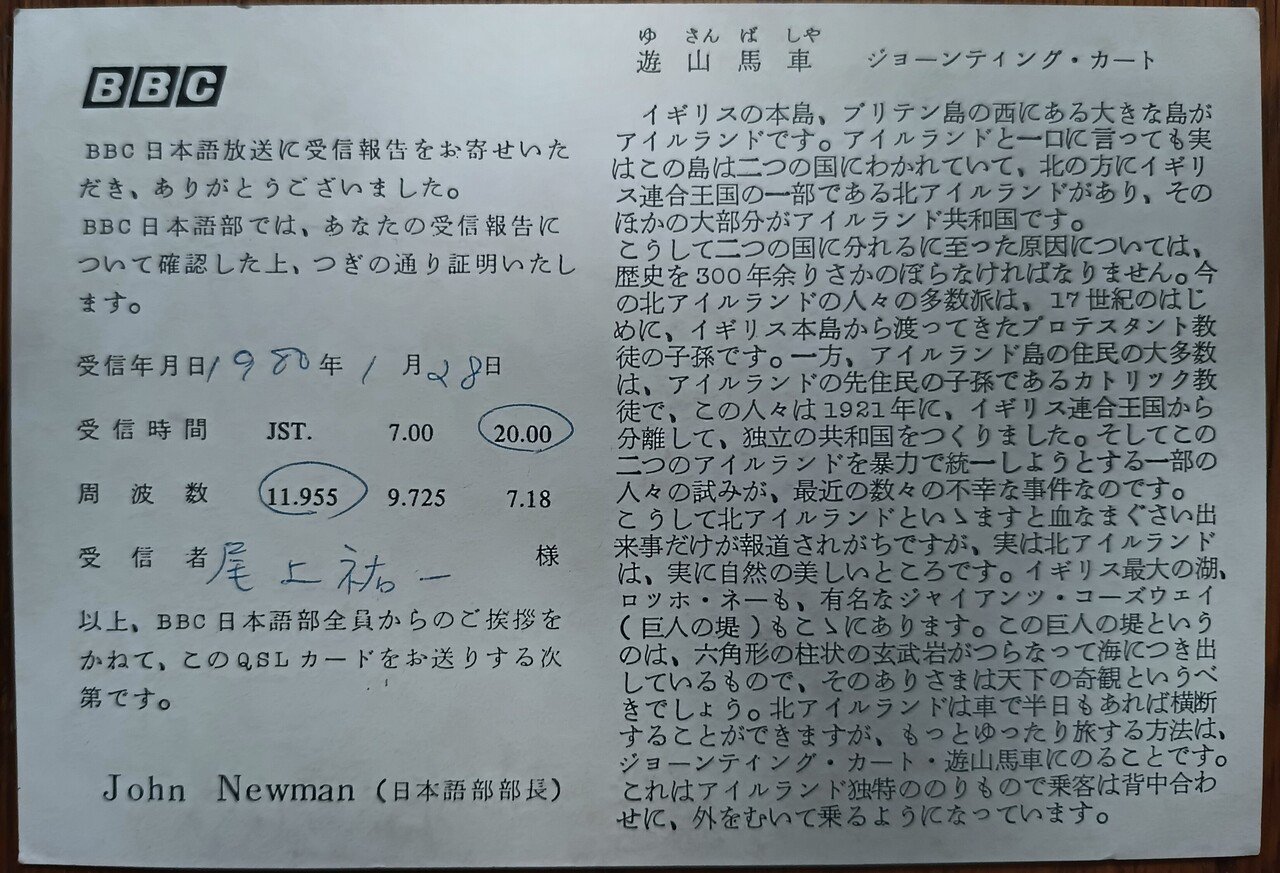 BBC
BBC日本語放送に受信報告をお寄せいた
だき、ありがとうございました。
BBC日本語部では、あなたの受信報告に
ついて確認した上、つぎの通り証明いたし
ます。
受信年月日 1980年 1 月 28日
受信時間 JST. 7.00 20.00
周波数 11.955 9.725 7.18
受信者 尾上祐一 様
以上、BBC日本語部全員からのご挨拶を
かねて、このQSLカードをお送りする次
第です。
John Newman (日本語部部長)
ゆ さん ば しや
遊山馬車 ジョーンティング・カート
イギリスの本島、ブリテン島の西にある大きな島が
アイルランドです。アイルランドと一口に言っても実
はこの島は二つの国にわかれていて、北の方にイギリ
ス連合王国の一部である北アイルランドがあり、その
ほかの大部分がアイルランド共和国です。
こうして二つの国に分れるに至った原因については、
歴史を300年余りさかのぼらなければなりません。今
の北アイルランドの人々の多数派は、17世紀のはじ
めに、イギリス本島から渡ってきたプロテスタント教
徒の子孫です。一方、アイルランド島の住民の大多数
は、アイルランドの先住民の子孫であるカトリック教
徒で、この人々は1921年に、イギリス連合王国から
分離して、独立の共和国をつくりました。そしてこの
二つのアイルランドを暴力で統一しようとする一部の
人々の試みが、最近の数々の不幸な事件なのです。
こうして北アイルランドといゝますと血なまぐさい出
来事だけが報道されがちですが、実は北アイルランド
は、実に自然の美しいところです。イギリス最大の湖、
ロッホ・ネーも、有名なジャイアンツ・コーズウェイ
(巨人の堤)もこゝにあります。この巨人の堤という
のは、六角形の柱状の玄武岩がつらなって海につき出
しているもので、そのありさまは天下の奇観というべ
きでしょう。北アイルランドは車で半日もあれば横断
することができますが、もっとゆったり旅する方法は、
ジョーンティング・カート・遊山馬車にのることです。
これはアイルランド独特ののりもので乗客は背中合わ
せに、外をむいて乗るようになっています。